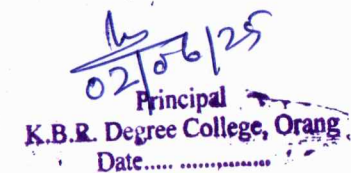 02/06/25
Principal
K.B.R. Degree College, Orang
Date..... ............